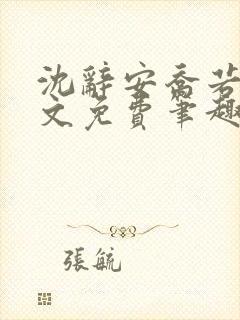 沈辭安喬若
文免費筆趣
張毓